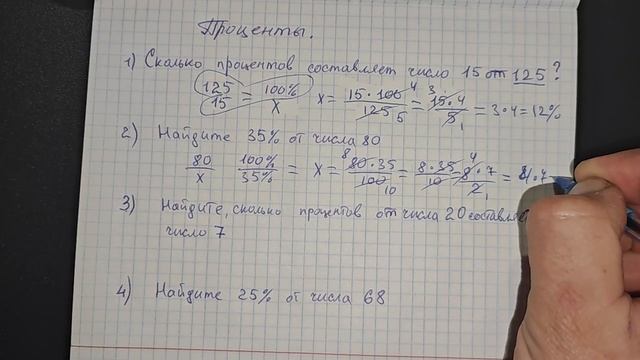 Проценты.
1) Сколько процентов составляет число 15 от 125?
125/15 = 100%/x   x = 15·100/125 = 15·4/5 = 3·4 = 12%
2) Найдите 35% от числа 80
80/x   100%/35% =   x = 80·35/100 = 8·35/10 = 8·7/2 = 4·7
3) Найдите, сколько процентов от числа 20 составляе
число 7
4) Найдите 25% от числа 68